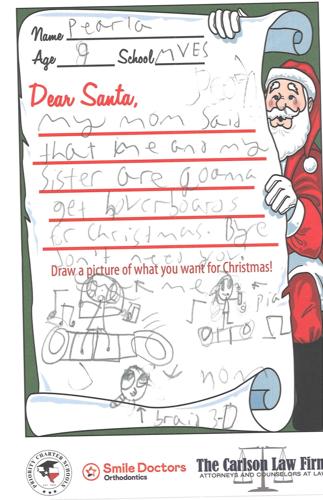 Name Pearla
Age 9 School MVES
Dear Santa,
My mom said
that me and my
sister are goanna
get hoverboards
for Christmas. Bye
don't need you
Draw a picture of what you want for Christmas!
me
PRIORITY CHARTER SCHOOLS
Smile Doctors
Orthodontics
The Carlson Law Firm
ATTORNEYS AND COUNSELORS AT LAW